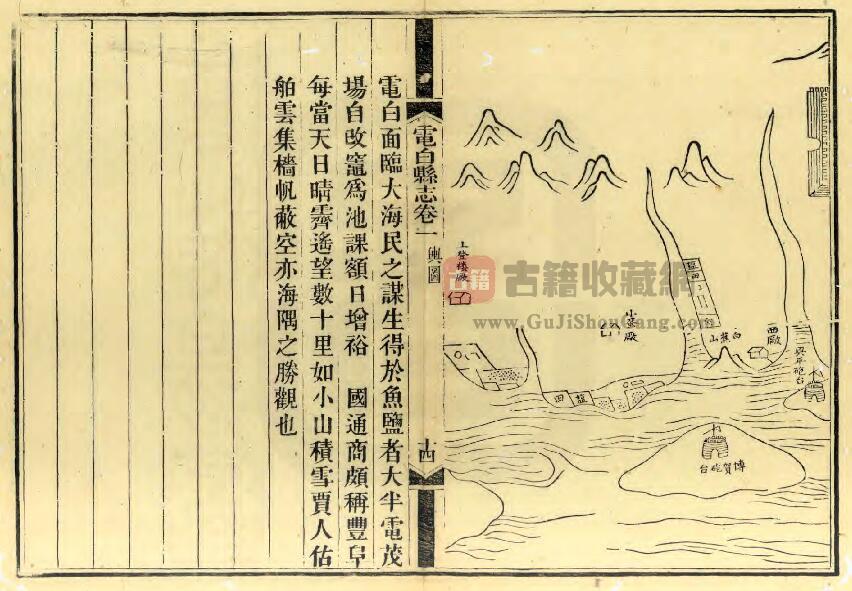 西廠
博賀砲台
上登楼廠
電白縣志卷一
輿圖
十四
電白面臨大海民之謀生得於魚鹽者大半電茂
場自改竈爲池課額日增裕 國通商頗稱豐阜
每當天日晴霽遙望數十里如小山積雪賈人估
舶雲集檣帆蔽空亦海隅之勝觀也
古籍
古籍收藏網
www.GuJiShouCang.com